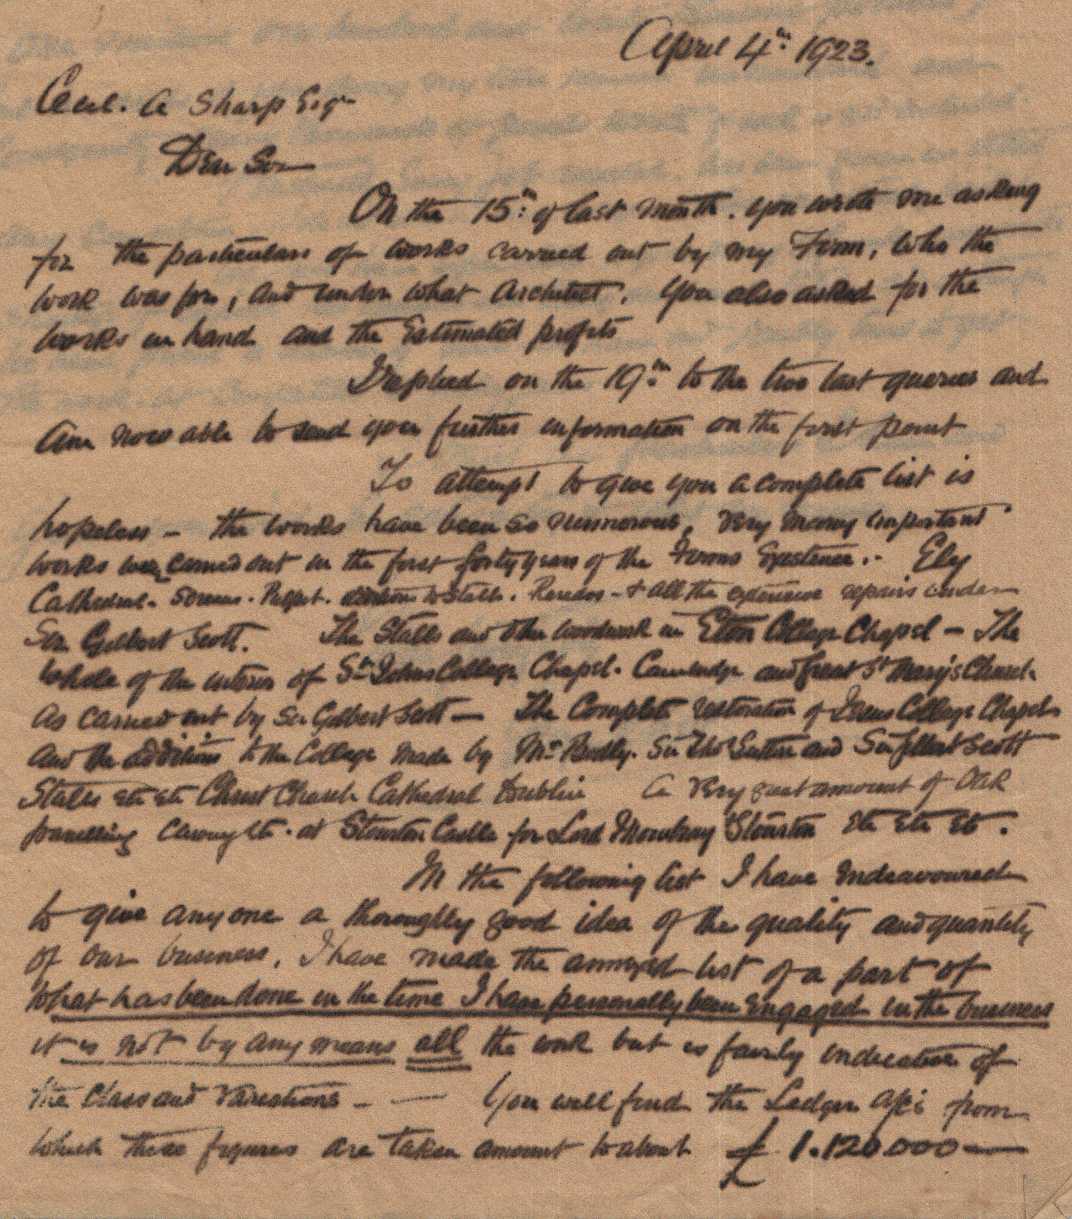 April 4th 1923.
Cecil. A Sharp Esqr
Dear Sir
On the 15th of last month. you wrote me asking
for the particulars of works carried out by my Firm, Who the
work was for, and under what Architect. You also asked for the
works in hand and the Estimated profits
I replied on the 19th to the two last queries and
am now able to send you further information on the first point
To attempt to give you a complete list is
hopeless - the works have been so numorous, very many important
works were carried out in the first forty years of the Firms Existence. - Ely
Cathedral. Screens. Pulpit. additions to Stalls. Reredos - & all the extensive repairs under
Sir Gilbert Scott. The Stalls and other woodwork in Eton College Chapel - The
whole of the interior of St Johns College Chapel. Cambridge and Great St Mary's Church
as carried out by Sir Gilbert Scott - The Complete restoration of Jesus College Chapel
and the additions to the College made by Mr Bodley. Sir and Sir Gilbert Scott
Stalls etc etc Christ Church Cathedral Dublin A very great amount of Oak
panelling carving etc. at Stourton Castle for Lord Mowbray & Stourton etc etc etc.
In the following list I have endeavoured
to give anyone a thoroughly good idea of the quality and quantity
of our business, I have made the annexed list of a part of
what has been done in the time I have personally been engaged in the business
it is not by any means all the work but is fairly indicative of
the class and variations - — You will find the Ledger from
which these figures are taken amount to about £1.120.000 —